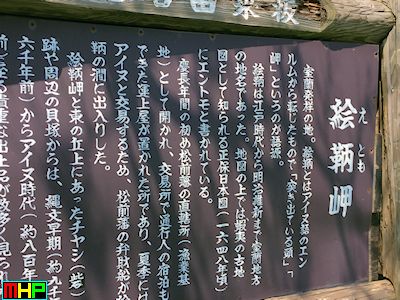 絵鞆岬
え とも
室蘭発祥の地。絵鞆とはアイヌ語のエン
ルムから転じたもので「突き出ている頭」「
岬」というのが語源。
絵鞆は江戸時代から明治維新まで室蘭地方
の地名であった。地図の上では蝦夷の古地
図として知られる正保日本図(一六四八年頃)
にエントモと書かれている。
慶長年間の初め松前藩の直請所(漁業基
地)として開かれ、交易所で旅行人の宿泊も
できた運上屋が置かれた所であり、夏季には
アイヌと交易するため、松前藩の手獣船が絵
鞆の澗に出入りした。
絵鞆岬と東の丘上にあったチャシ(砦)
跡や周辺の貝塚からは、縄文早期(約九千
六千年前)からアイヌ時代(約八百年
MHP